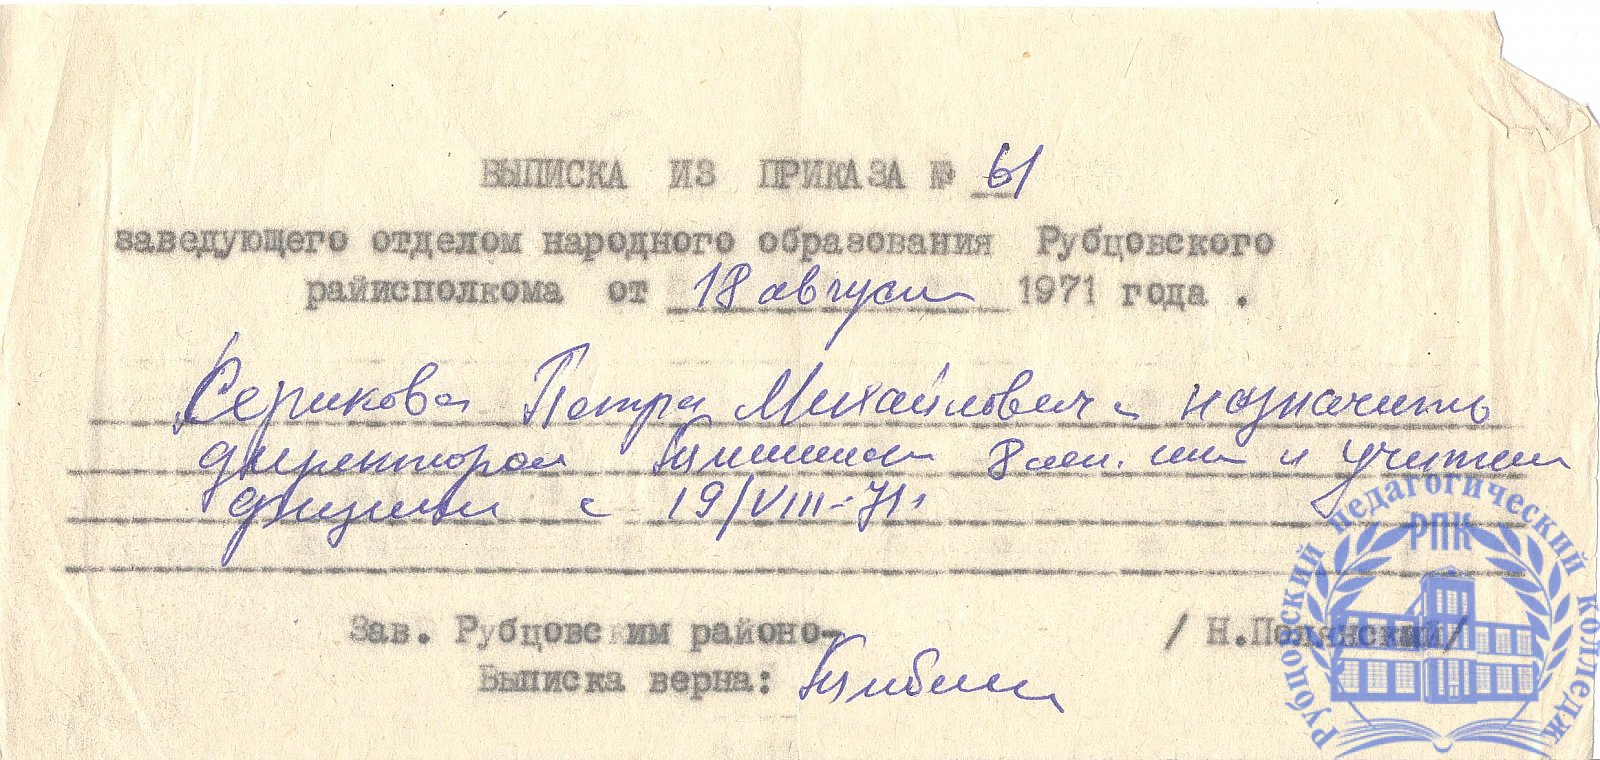 ВЫПИСКА ИЗ ПРИКАЗА № 61
заведующего отделом народного образования Рубцовского
райисполкома от 18 августа 1971 года .
Серикова Петра Михайловича назначить
директором 8 лет. шк и учителем
физики с 19/VIII-71г
Зав. Рубцовским районо- / Н.Полянский/
Выписка верна:
РПК
Рубцовский педагогический колледж